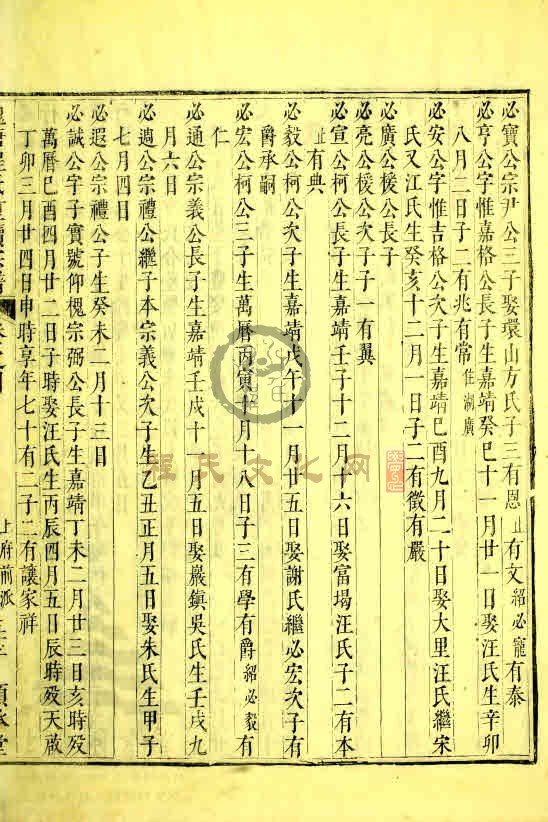 必寶公宗尹公三子娶環山方氏子三有恩 有文紹必寵有泰
必亨公字惟嘉格公長子生嘉靖癸巳十一月廿一日娶汪氏生辛卯
八月二日子二有兆有常住湖廣
必安公字惟吉格公次子生嘉靖己酉九月二十日娶大里汪氏繼宋
氏又江氏生癸亥十二月一日子二有徵有嚴
必廣公楼公長子
必亮公楼公次子子一有翼
必宣公柯公長子生嘉靖壬子十二月十六日娶富堨汪氏子二有本
有典
必毅公柯公次子生嘉靖戊午十一月廿五日娶謝氏繼必宏次子有
爵承嗣
必宏公柯公三子生萬曆丙寅十月十八日子三有學有爵紹必毅有
仁
必通公宗義公長子生嘉靖壬戌十一月五日娶巖鎮吳氏生壬戌九
月六日
必週公宗禮公繼子本宗義公次子生乙丑正月五日娶朱氏生甲子
七月四日
必遐公宗禮公子生癸未二月十三日
必誠公字子實號仰槐宗弼公長子生嘉靖丁未二月廿三日亥時歿
萬曆己酉四月廿二日子時娶汪氏生丙辰四月五日辰時歿天啟
丁卯三月廿四日申時享年七十有二子二有讓家祥
上府前派
程氏文化网